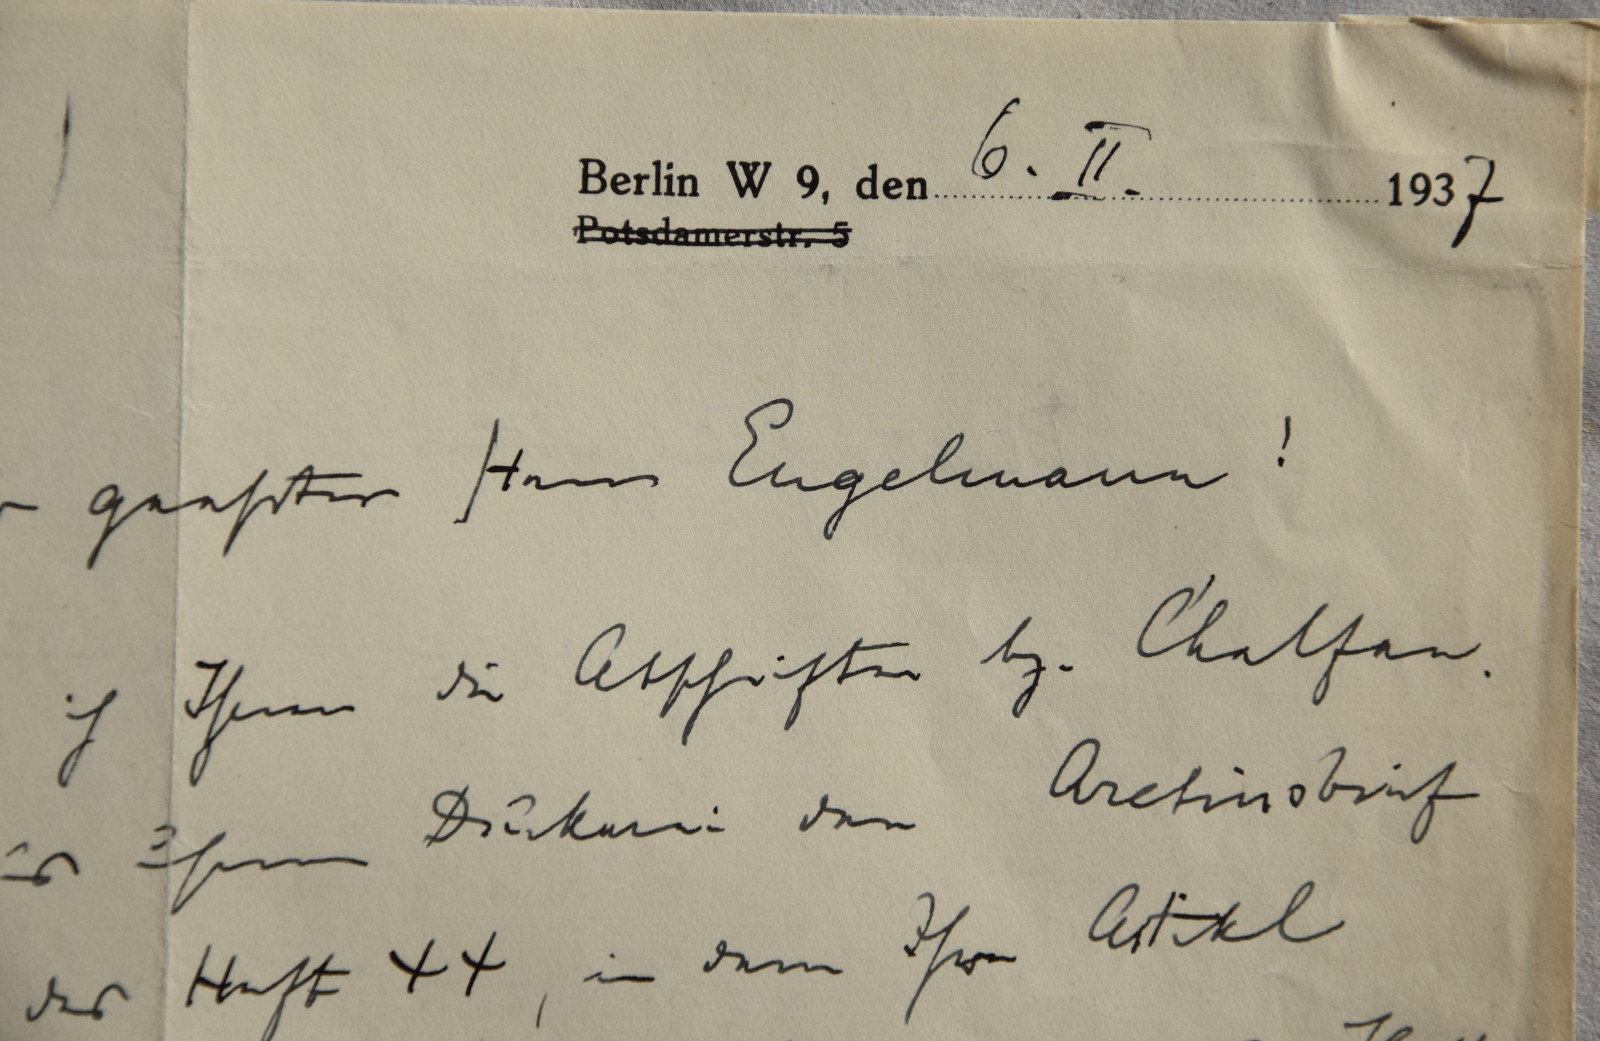 Berlin W 9, den 6. II. 1937
Potsdamerstr. 5
geehrter Herr Engelmann!
ich Ihnen die Abschriften bz. Chalfan.
Ihrem Druckerei den Aretinsbrief
das Heft 44, in dem Ihr Artikel